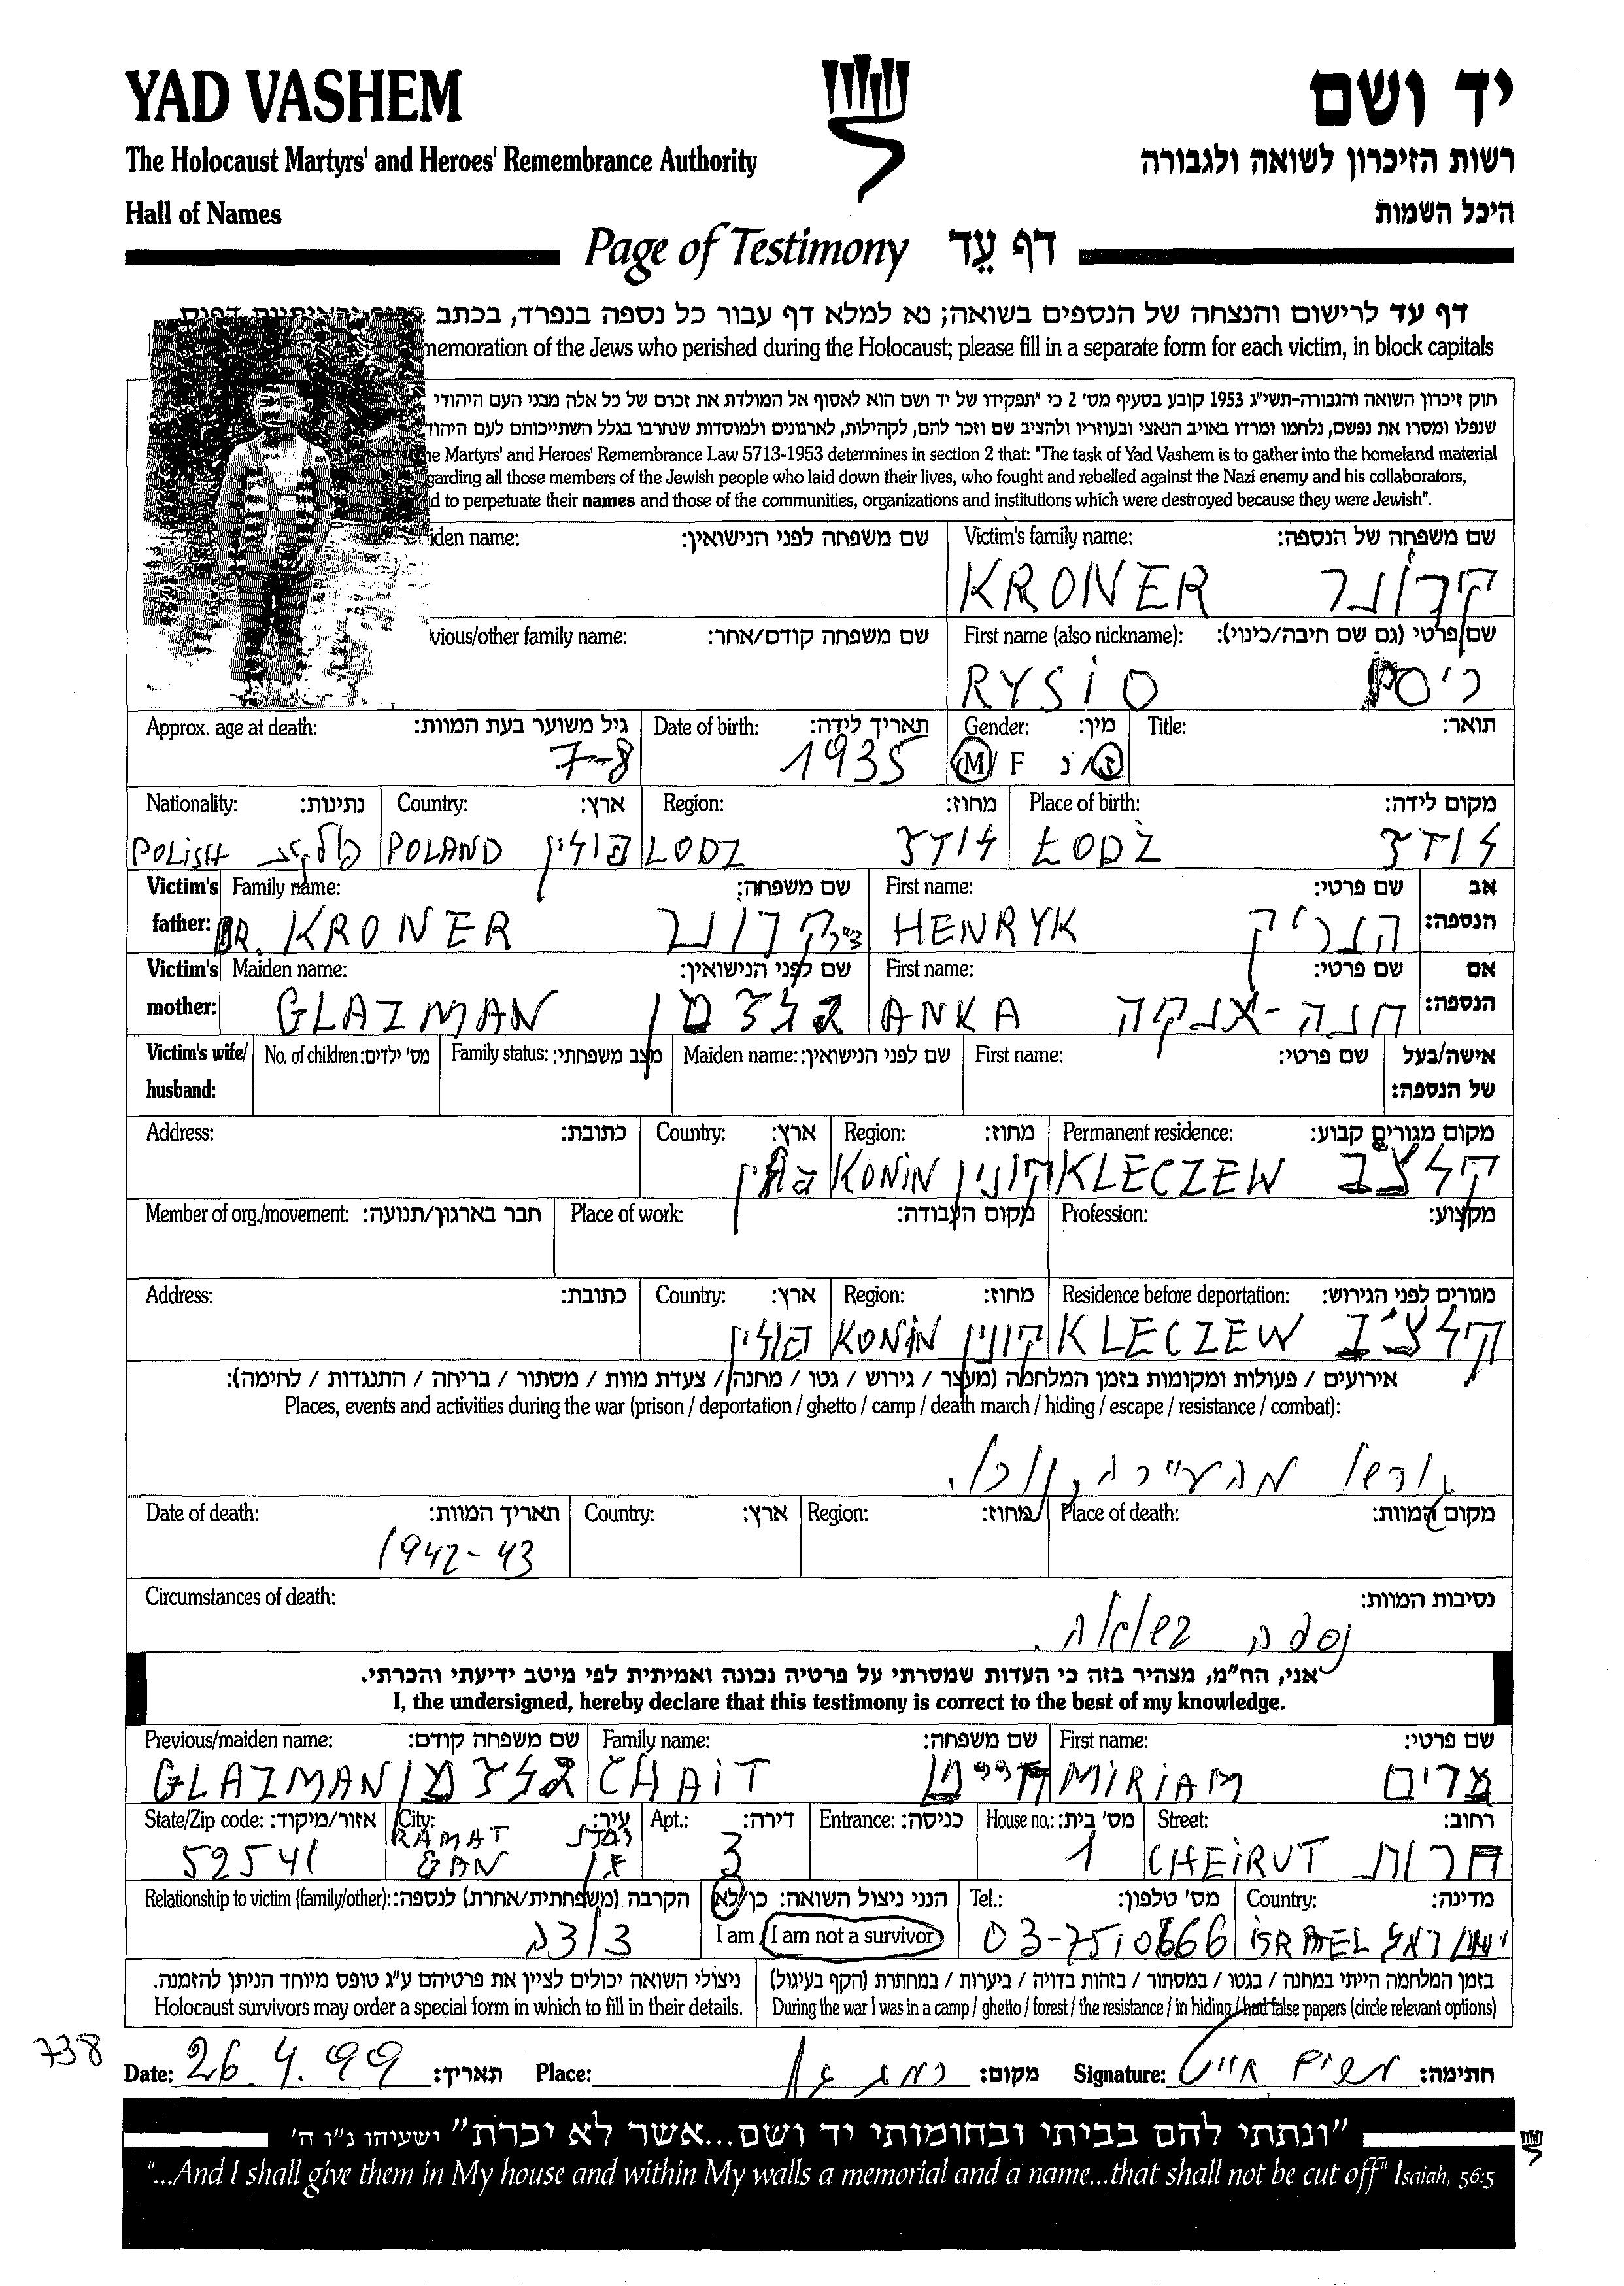 YAD VASHEM
יד ושם
The Holocaust Martyrs' and Heroes' Remembrance Authority
רשות הזיכרון לשואה ולגבורה
Hall of Names
היכל השמות
Page of Testimony דף עֵד
דף עד לרישום והנצחה של הנספים בשואה; נא למלא דף עבור כל נספה בנפרד, בכתב
memoration of the Jews who perished during the Holocaust; please fill in a separate form for each victim, in block capitals
חוק זיכרון השואה והגבורה-תשי"ג 1953 קובע בסעיף מס' 2 כי "תפקידו של יד ושם הוא לאסוף אל המולדת את זכרם של כל אלה מבני העם היהודי
שנפלו ומסרו את נפשם, נלחמו ומרדו באויב הנאצי ובעוזריו ולהציב שם וזכר להם, לקהילות, לארגונים ולמוסדות שנחרבו בגלל השתייכותם לעם היהוד
he Martyrs' and Heroes' Remembrance Law 5713-1953 determines in section 2 that: "The task of Yad Vashem is to gather into the homeland material
garding all those members of the Jewish people who laid down their lives, who fought and rebelled against the Nazi enemy and his collaborators,
d to perpetuate their names and those of the communities, organizations and institutions which were destroyed because they were Jewish".
iden name: שם משפחה לפני הנישואין: Victim's family name: שם משפחה של הנספה:
KRONER קרונר
vious/other family name: שם משפחה קודם/אחר: First name (also nickname): שם פרטי (גם שם חיבה/כינוי):
RYSIO
Approx. age at death: גיל משוער בעת המוות: Date of birth: תאריך לידה: Gender: מין: Title: תואר:
7-8 1935 M/F ז/נ
Nationality: נתינות: Country: ארץ: Region: מחוז: Place of birth: מקום לידה:
POLISH POLAND פולין LODZ לודז ŁODZ לודז
Victim's father: Family name: שם משפחה: First name: שם פרטי: אב הנספה:
DR. KRONER קרונר HENRYK הנריק
Victim's mother: Maiden name: שם לפני הנישואין: First name: שם פרטי: אם הנספה:
GLAZMAN גלזמן ANKA חנה-אנקה
Victim's wife/ husband: No. of children: מס' ילדים: Family status: מצב משפחתי: Maiden name: שם לפני הנישואין: First name: שם פרטי: אישה/בעל של הנספה:
Address: כתובת: Country: ארץ: Region: מחוז: Permanent residence: מקום מגורים קבוע:
פולין KONIN קונין KLECZEW קלצ'ב
Member of org./movement: חבר בארגון/תנועה: Place of work: מקום העבודה: Profession: מקצוע:
Address: כתובת: Country: ארץ: Region: מחוז: Residence before deportation: מגורים לפני הגירוש:
פולין KONIN קונין KLECZEW קלצ'ב
אירועים / פעולות ומקומות בזמן המלחמה (מעצר / גירוש / גטו / מחנה / צעדת מוות / מסתור / בריחה / התנגדות / לחימה):
Places, events and activities during the war (prison / deportation / ghetto / camp / death march / hiding / escape / resistance / combat):
גורשו מהעיירה
Date of death: תאריך המוות: Country: ארץ: Region: מחוז: Place of death: מקום המוות:
1942-43
Circumstances of death: נסיבות המוות:
נספה בשואה.
אני, הח"מ, מצהיר בזה כי העדות שמסרתי על פרטיה נכונה ואמיתית לפי מיטב ידיעתי והכרתי.
I, the undersigned, hereby declare that this testimony is correct to the best of my knowledge.
Previous/maiden name: שם משפחה קודם: Family name: שם משפחה: First name: שם פרטי:
GLAZMAN גלזמן CHAIT חייט MIRIAM מרים
State/Zip code: אזור/מיקוד: City: עיר: Apt.: דירה: Entrance: כניסה: House no.: מס' בית: Street: רחוב:
52541 RAMAT GAN רמת גן 3 1 CHEIRUT חרות
Relationship to victim (family/other): הקרבה (משפחתית/אחרת) לנספה: הנני ניצול השואה: כן/לא Tel.: מס' טלפון: Country: מדינה:
דודה I am / I am not a survivor 03-7510666 ISRAEL ישראל
ניצולי השואה יכולים לציין את פרטיהם ע"ג טופס מיוחד הניתן להזמנה. בזמן המלחמה הייתי במחנה / בגטו / במסתור / בזהות בדויה / ביערות / במחתרת (הקף בעיגול)
Holocaust survivors may order a special form in which to fill in their details. During the war I was in a camp / ghetto / forest / the resistance / in hiding / had false papers (circle relevant options)
738
Date: 26.4.99 תאריך: Place: רמת גן מקום: Signature: מרים חייט חתימה:
"ונתתי להם בביתי ובחומותי יד ושם...אשר לא יכרת" ישעיהו נ"ו ה'
"...And I shall give them in My house and within My walls a memorial and a name...that shall not be cut off" Isaiah, 56:5